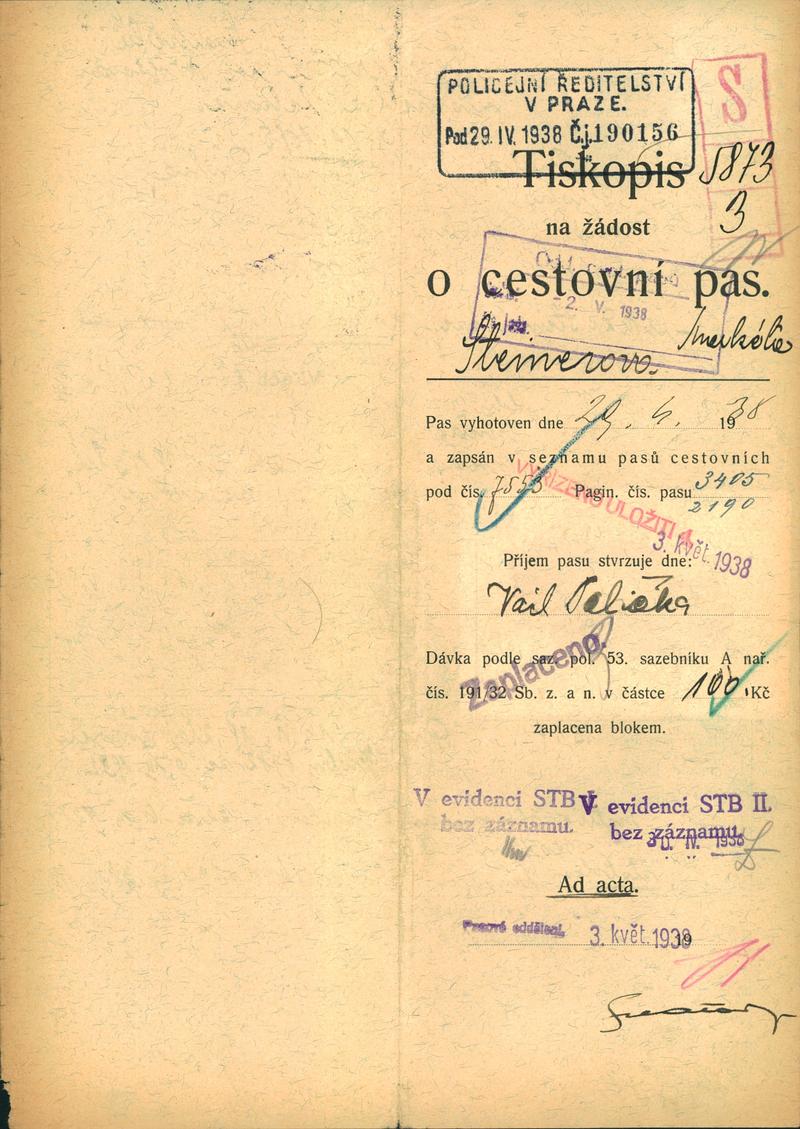 POLICEJNÍ ŘEDITELSTVÍ
V PRAZE.
Pod 29. IV. 1938 Č.j. 190156
S
Tiskopis
5873
3
na žádost
o cestovní pas.
-2. V. 1938
Steinerova
Pas vyhotoven dne 29. 4. 1938
a zapsán v seznamu pasů cestovních
pod čís. 7553 Pagin. čís. pasu 3405
2190
VYŘÍZENO ULOŽITI
3. květ. 1938
Příjem pasu stvrzuje dne:
Dávka podle saz. pol. 53. sazebníku A nař.
Zaplaceno.
čís. 191/32 Sb. z. a n. v částce 100.- Kč
zaplacena blokem.
V evidenci STB
bez záznamu.
V evidenci STB II.
bez záznamu.
30. IV. 1938
Ad acta.
Pasové oddělení.
3. květ. 1938
19